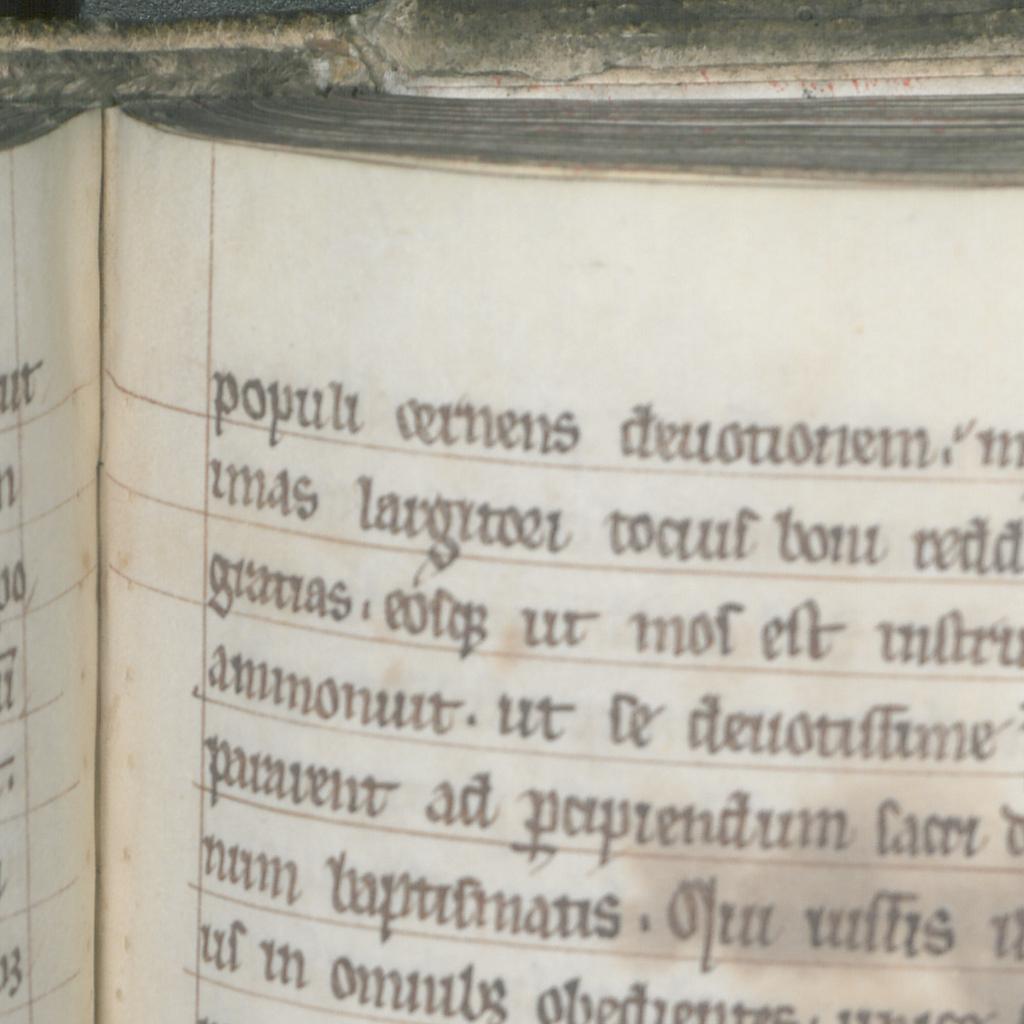 populi cernens deuotionem.
imas largitori tocius boni redd
gratias. eosq; ut mos est instru
ammonuit. ut se deuotissime
pararent ad p̲cipiendum sacri
num baptismatis. Qui iussis
us in omnib; obedientes.